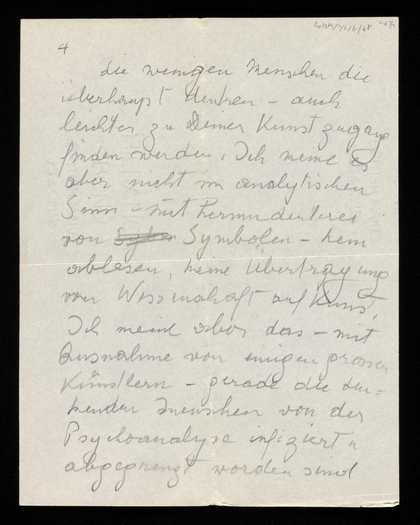 4
die wenigen Menschen die
überhaupt denken – auch
leichter zu Deiner Kunst zugang
finden werden. Ich meine es
aber nicht im analytischen
Sinn – mit
von Symbolen – kein
ablesen, keine Übertragung
von Wissenschaft auf Kunst.
Ich meine aber das – mit
Ausnahme von einigen grossen
Künstlern – gerade die den=
kenden Menschen von der
Psychoanalyse infiziert u
abgegrenzt worden sind